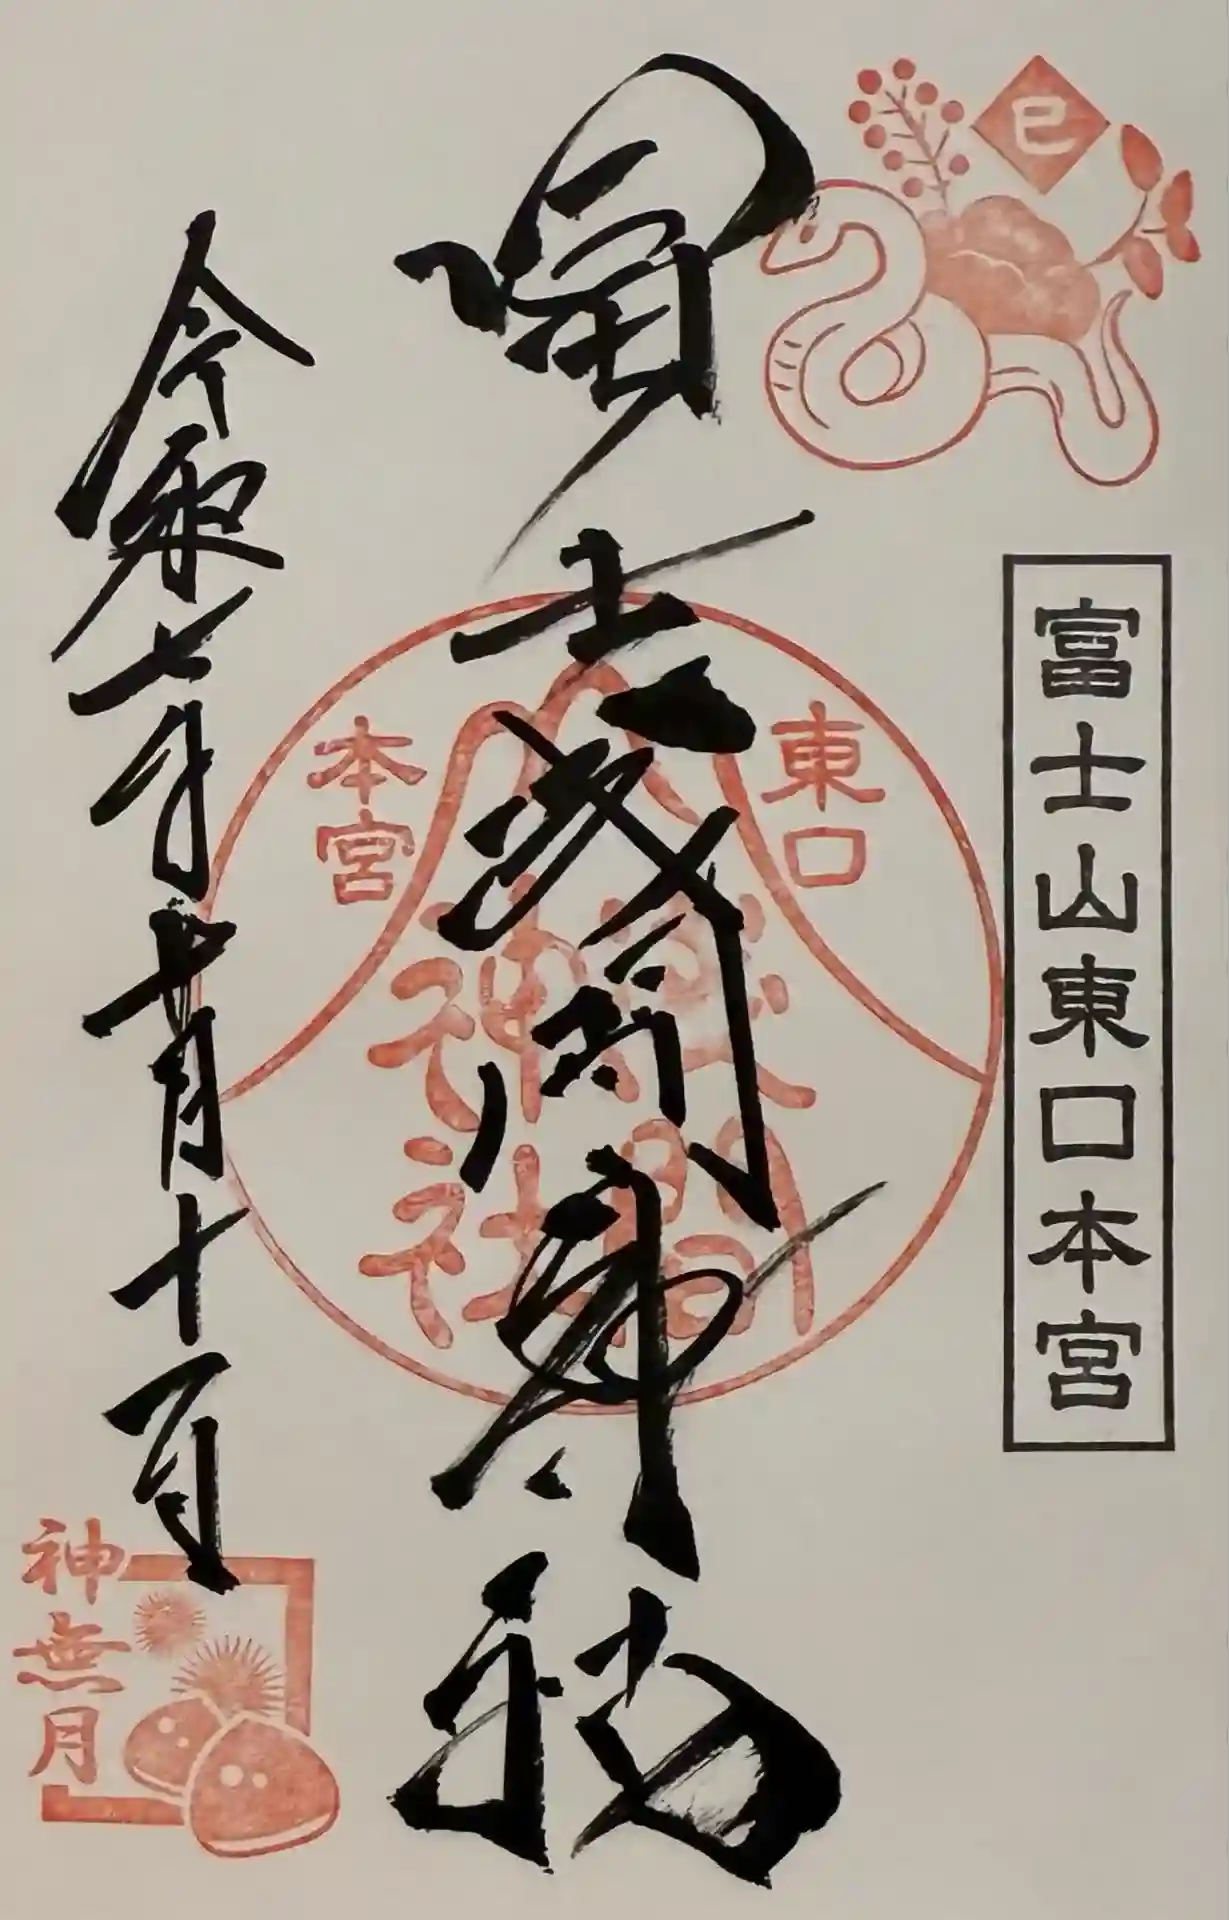 巳
富士山東口本宮
東口
本宮
淺間
神社
冨士浅間神社
令和七年十月十一日
神無月